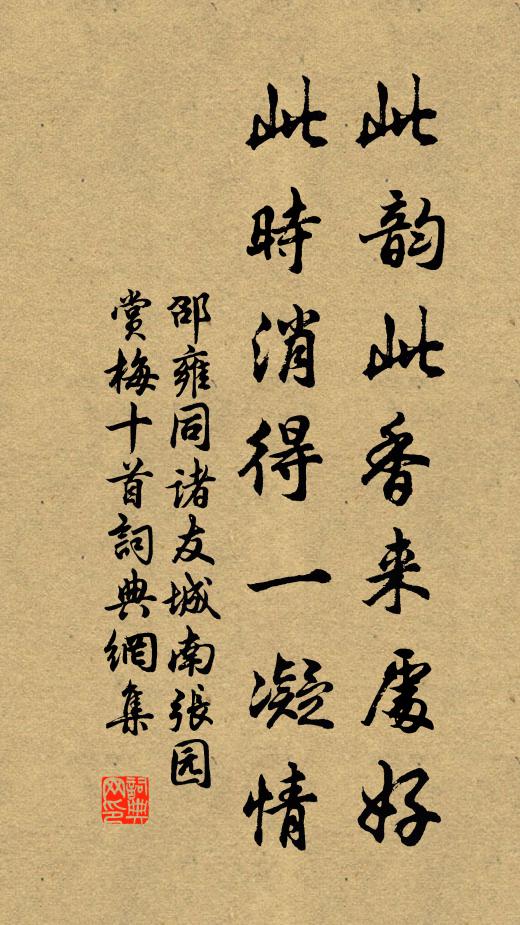 此韵此香来處好
此時消得一凝情
邵雍同诸友城南張园
赏梅十首詞典網集
詞典网印